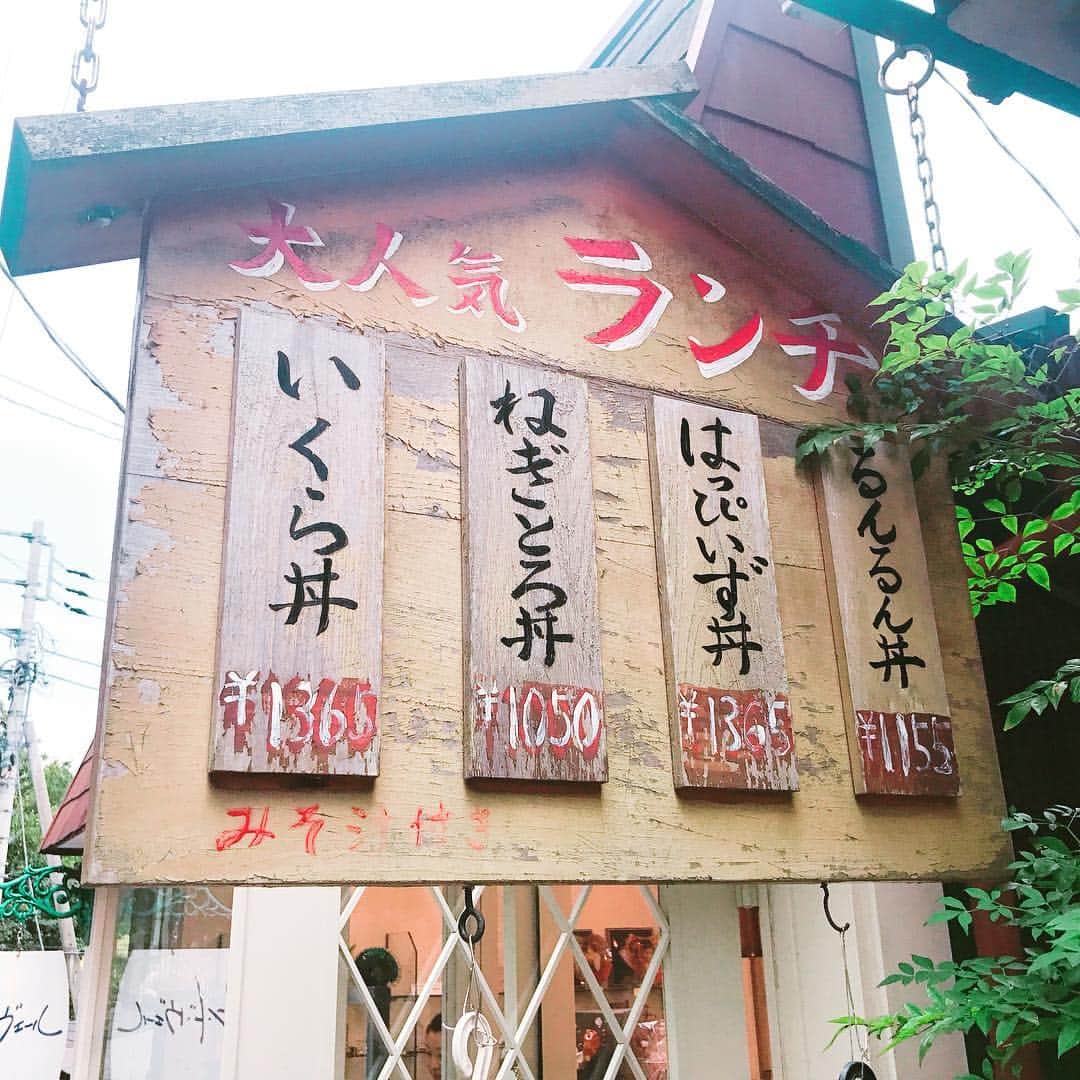 大人気ランチ
いくら丼
¥1365
ねぎとろ丼
¥1050
はっぴいず丼
¥1365
るんるん丼
¥1155
みそ汁付き
ヴェール